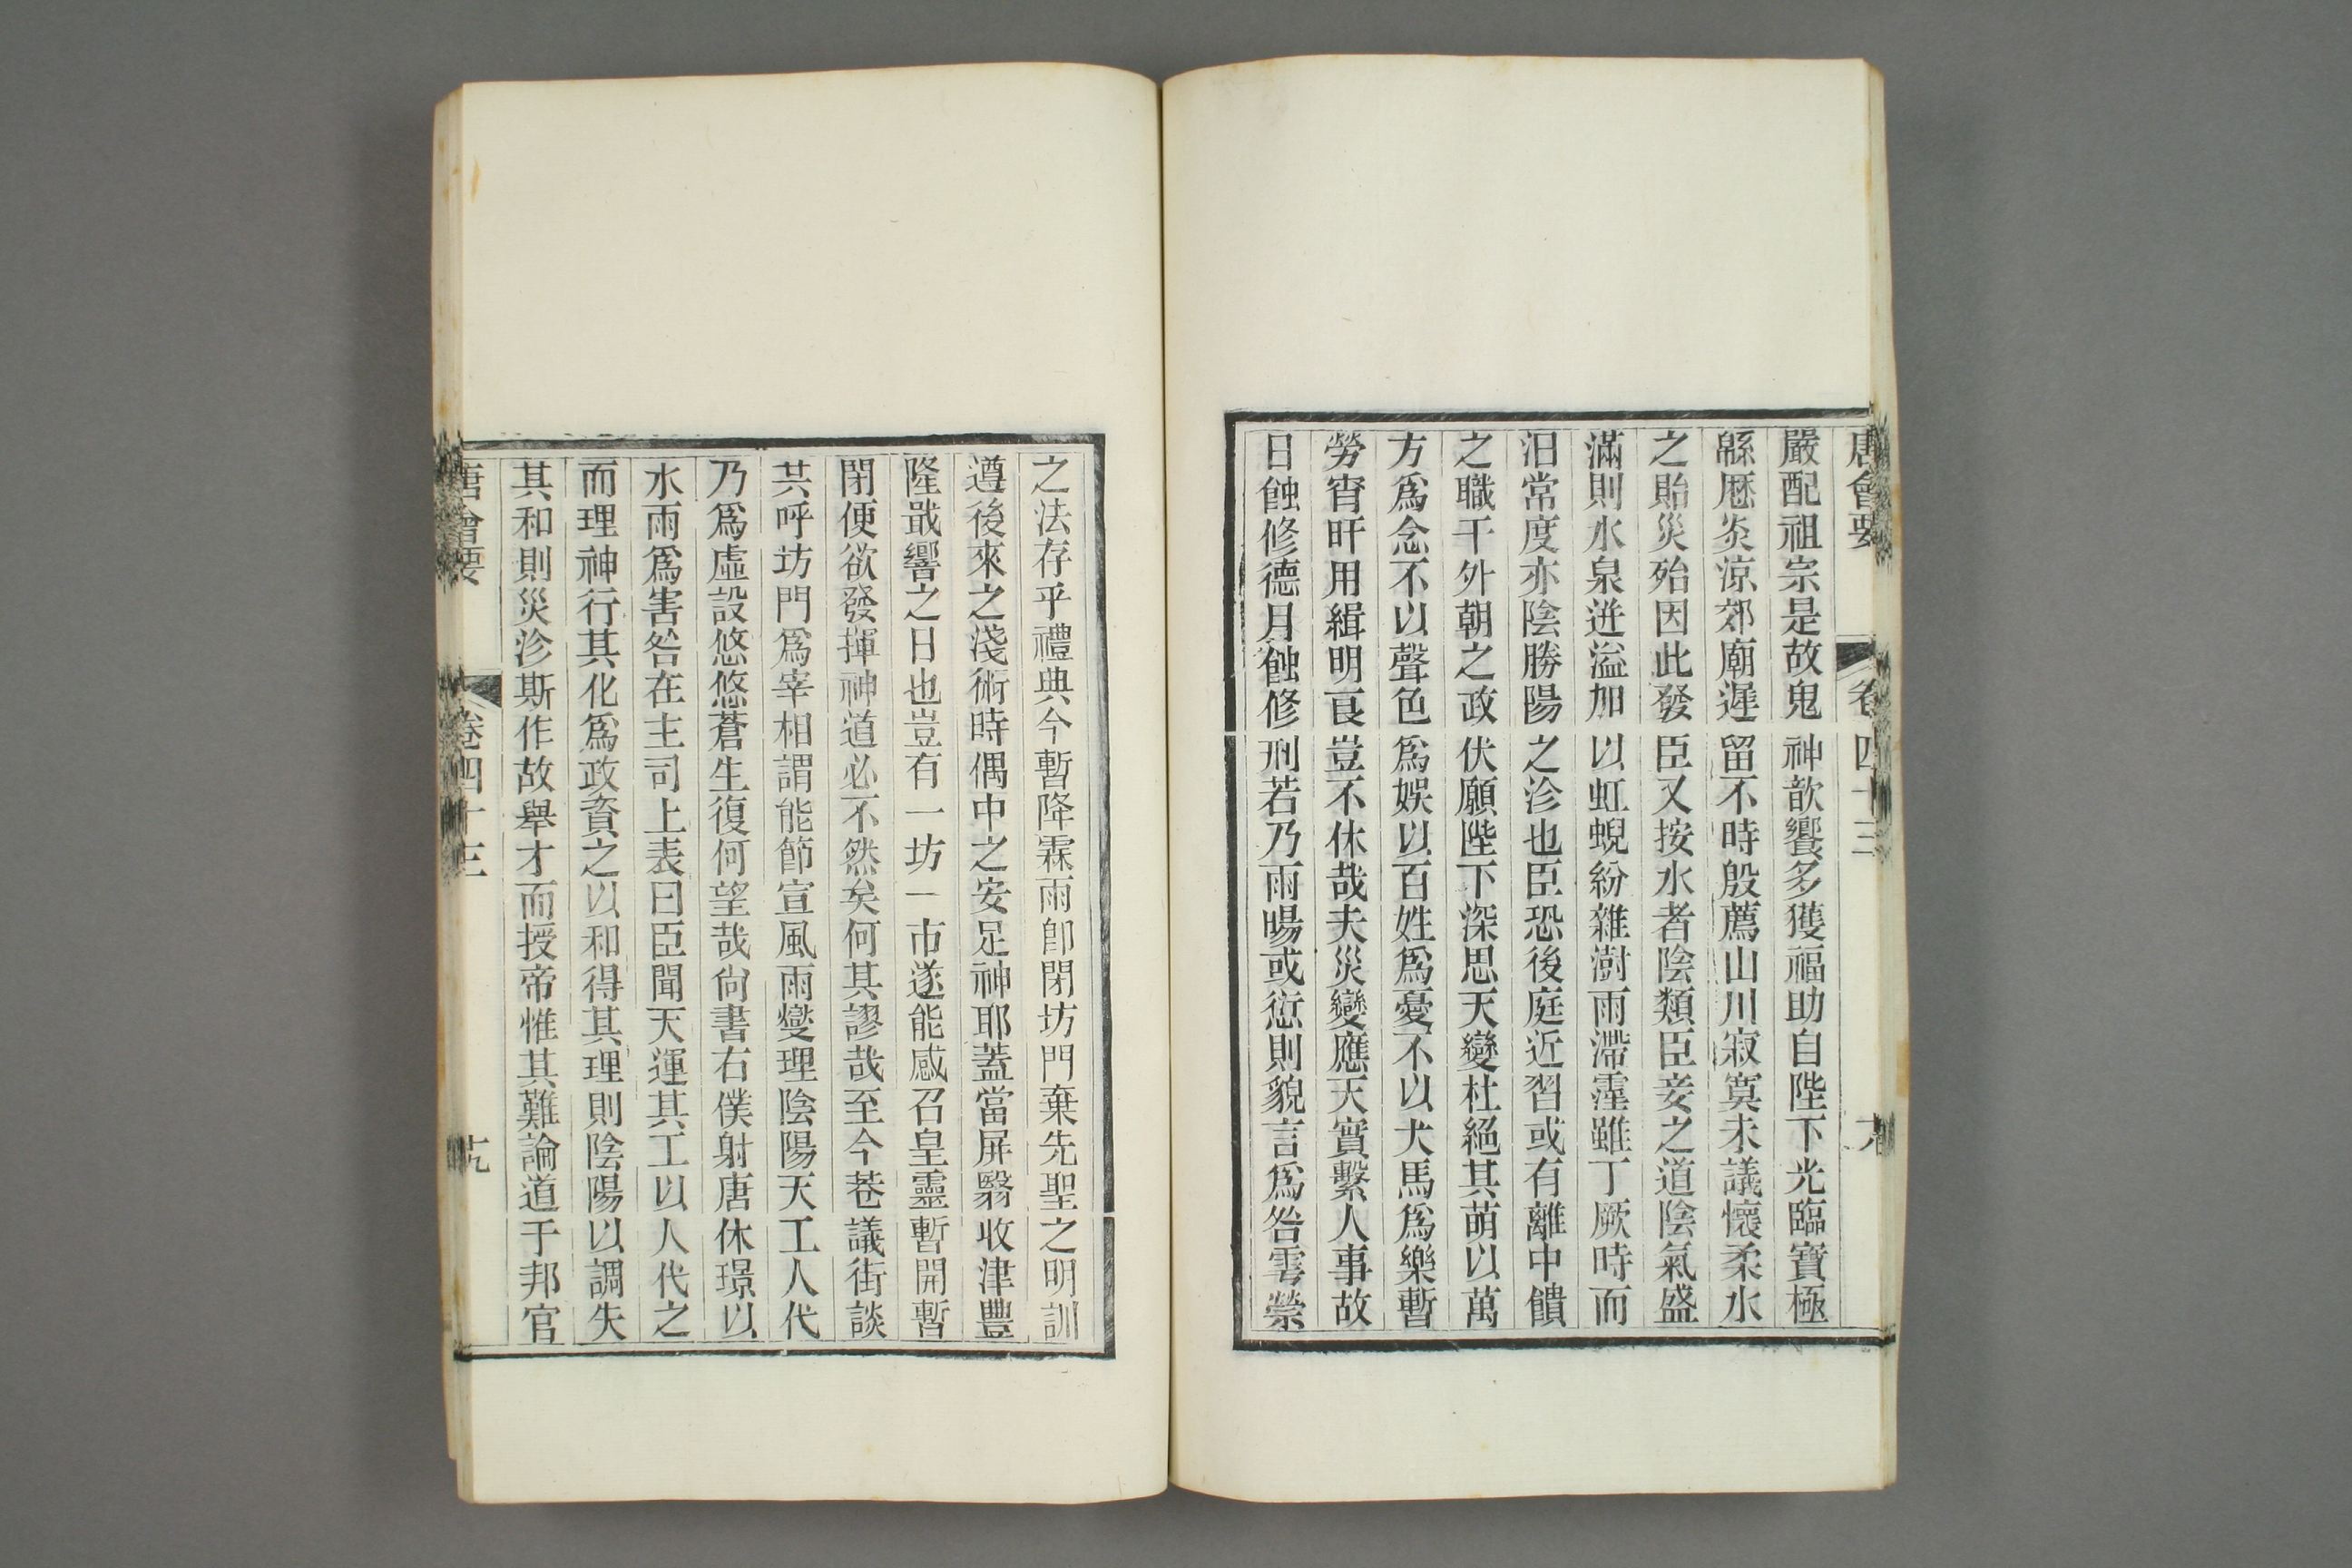 唐會要 卷四十三
嚴配祖宗是故鬼神歆饗多獲福助自陛下光臨寶極
緜歷炎涼郊廟遲留不時殷薦山川寂寞未議懷柔水
之貽災殆因此發臣又按水者陰類臣妾之道陰氣盛
滿則水泉迸溢加以虹蜺紛雜澍雨滯霪雖丁厥時而
汨常度亦陰勝陽之沴也臣恐後庭近習或有離中饋
之職干外朝之政伏願陛下深思天變杜絕其萌以萬
方爲念不以聲色爲娛以百姓爲憂不以犬馬爲樂暫
勞宵旰用緝明良豈不休哉夫災變應天實繫人事故
日蝕修德月蝕修刑若乃雨暘或愆則貌言爲咎雩禜
之法存乎禮典今暫降霖雨卽閉坊門棄先聖之明訓
遵後來之淺術時偶中之安足神耶蓋當屏翳收津豐
隆戢響之日也豈有一坊一市遂能感召皇靈暫開暫
閉便欲發揮神道必不然矣何其謬哉至今巷議街談
共呼坊門爲宰相謂能節宣風雨燮理陰陽天工人代
乃爲虛設悠悠蒼生復何望哉尙書右僕射唐休璟以
水雨爲害咎在主司上表曰臣聞天運其工以人代之
而理神行其化爲政資之以和得其理則陰陽以調失
其和則災沴斯作故舉才而授帝惟其難論道于邦官
唐會要 卷四十三